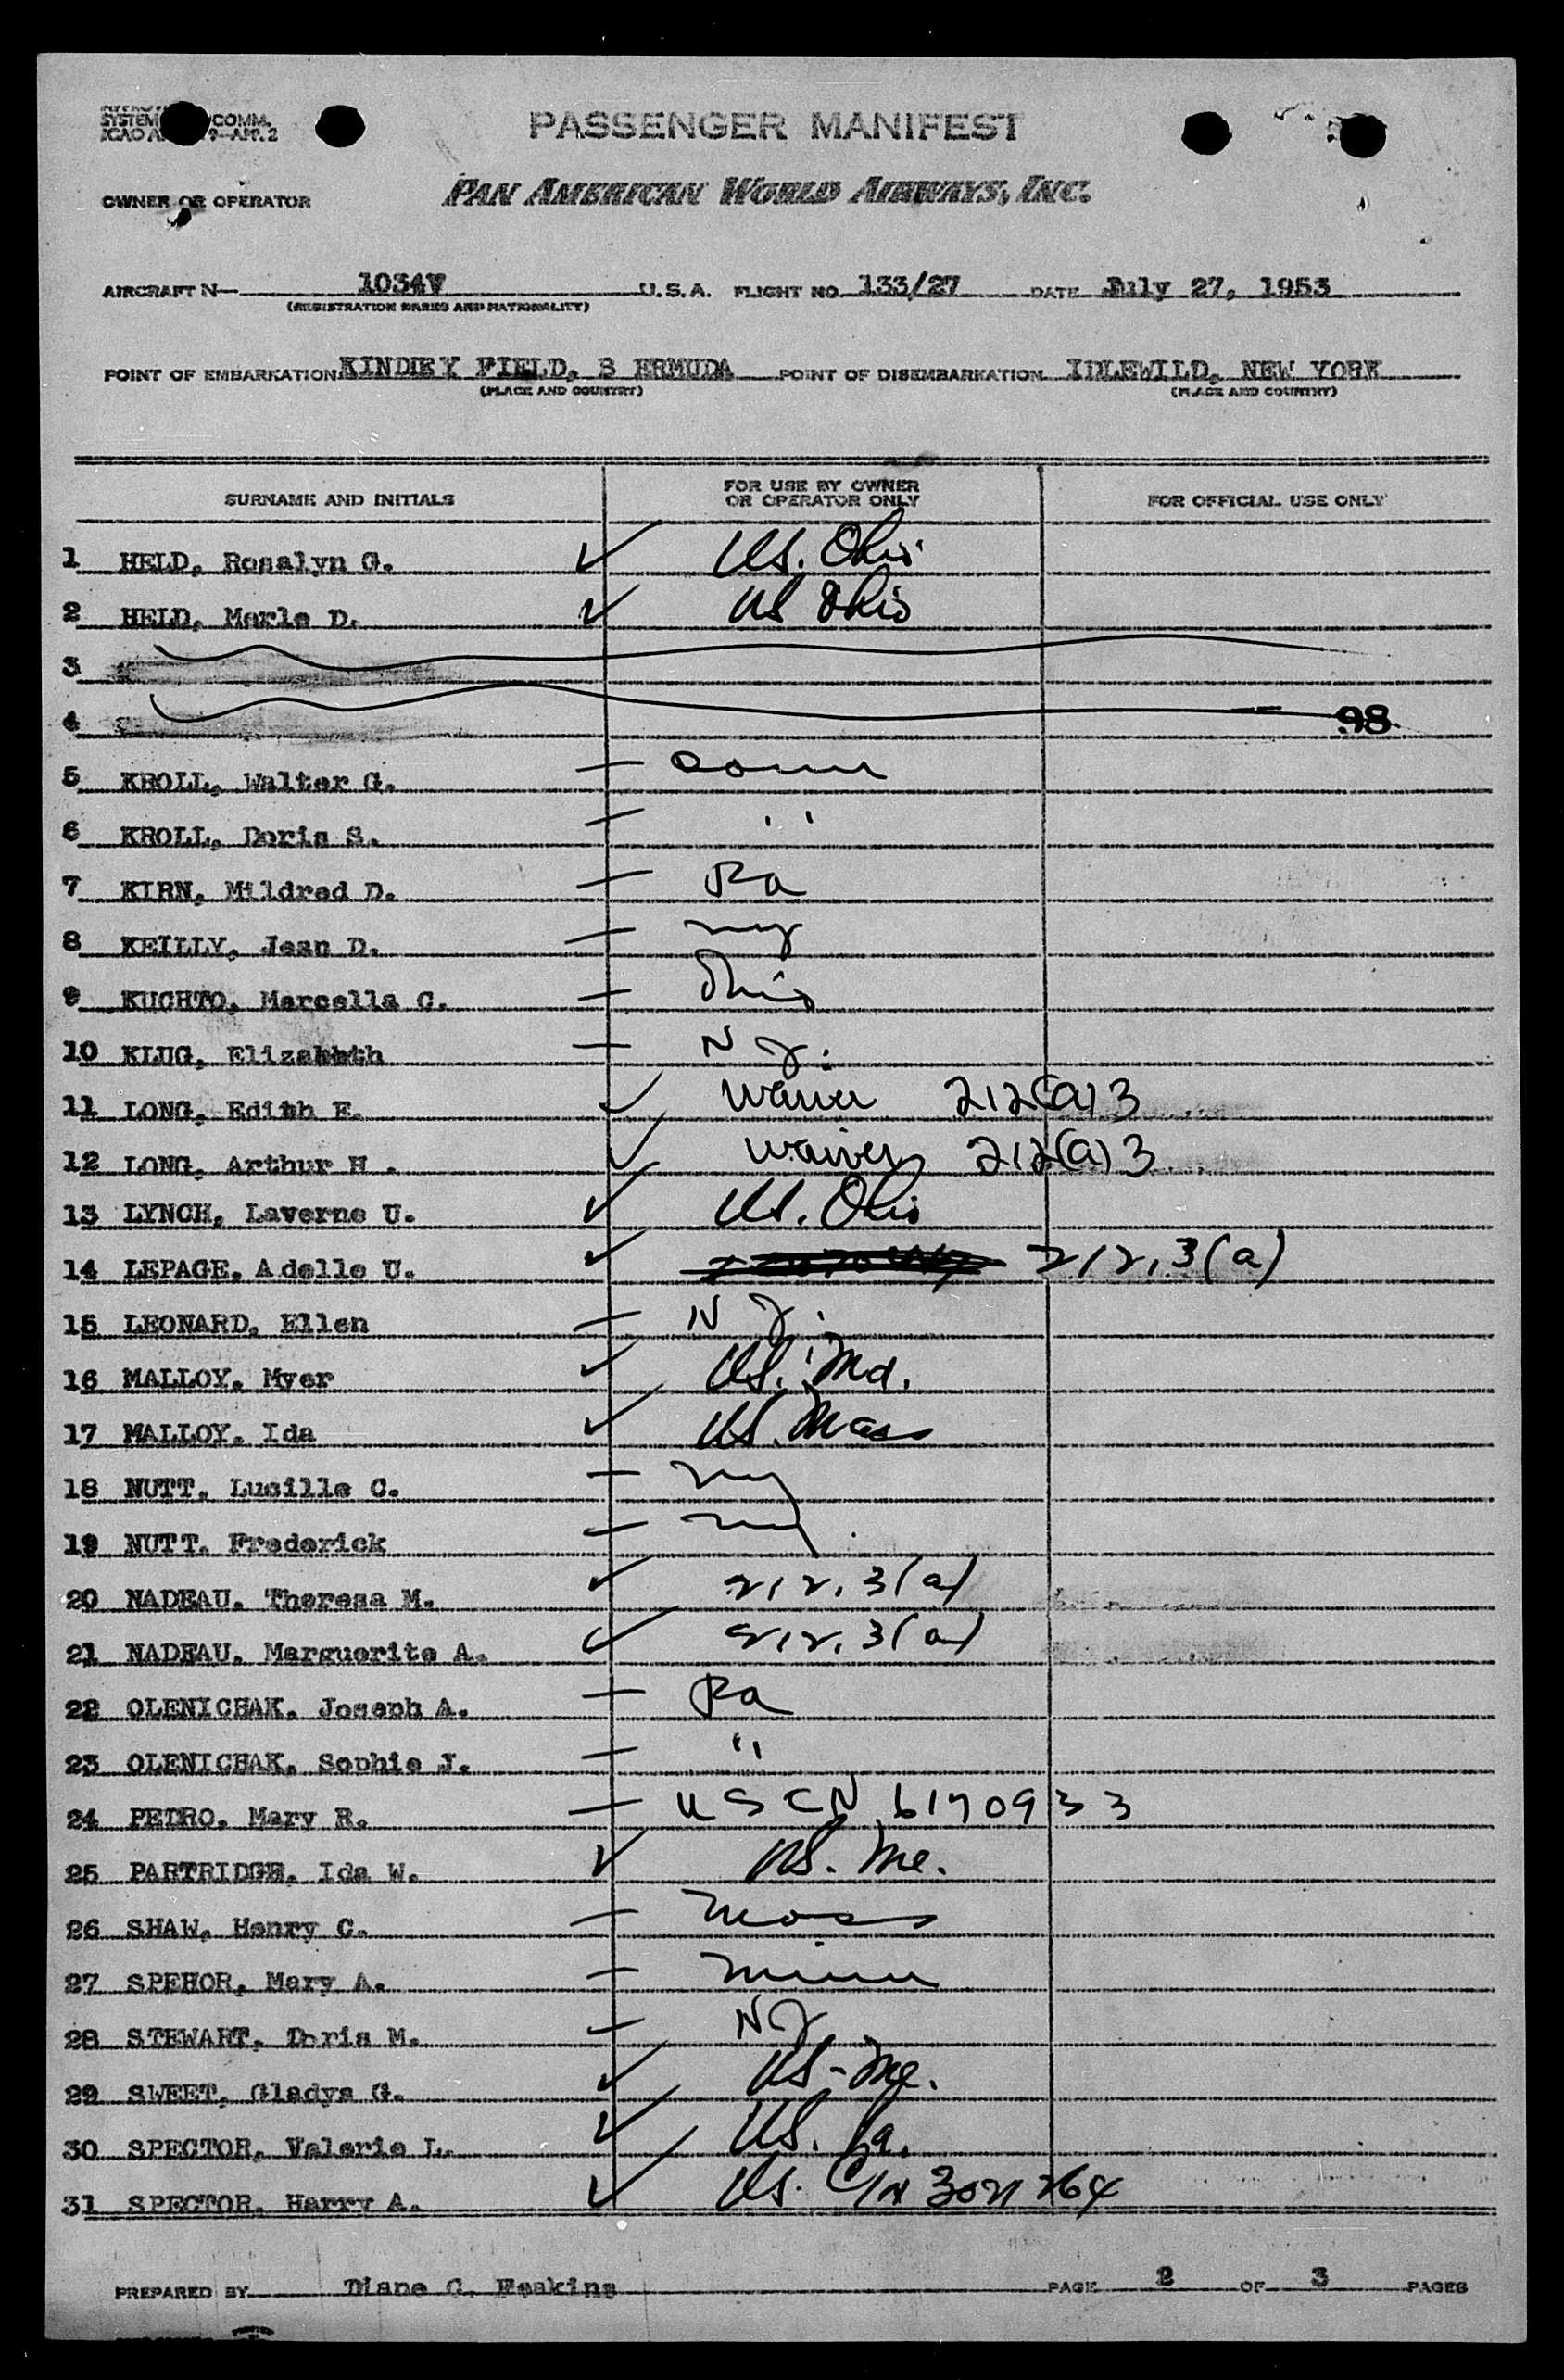 SYSTEM COMM.
ICAO 9—APP. 2
PASSENGER MANIFEST
OWNER OR OPERATOR
PAN AMERICAN WORLD AIRWAYS, INC.
AIRCRAFT N— 1034V U.S.A. FLIGHT NO. 133/27 DATE July 27, 1953
(REGISTRATION MARKS AND NATIONALITY)
POINT OF EMBARKATION KINDLEY FIELD, B ERMUDA POINT OF DISEMBARKATION IDLEWILD, NEW YORK
(PLACE AND COUNTRY) (PLACE AND COUNTRY)
SURNAME AND INITIALS FOR USE BY OWNER OR OPERATOR ONLY FOR OFFICIAL USE ONLY
1 HELD, Rosalyn G. ✓ US. Ohio
2 HELD, Merle D. ✓ US Ohio
3
4 98
5 KROLL, Walter G. — Conn
6 KROLL, Doris S. — "
7 KIRN, Mildred D. — Pa
8 KEILLY, Jean D. — ny
9 KUCHTO, Marcella C. — Ohio
10 KLUG, Elizabeth — N J.
11 LONG, Edith E. ✓ Waiver 212(a)3
12 LONG, Arthur H . ✓ Waiver 212(a)3
13 LYNCH, Laverne U. ✓ US. Ohio
14 LEPAGE, Adelle U. ✓ 212,3(a)
15 LEONARD, Ellen — N J.
16 MALLOY, Myer ✓ US. Md.
17 MALLOY, Ida ✓ US. Mass
18 NUTT, Lucille C. — ny
19 NUTT, Frederick — ny.
20 NADEAU, Theresa M. ✓ 212,3(a)
21 NADEAU, Marguerite A. ✓ 212,3(a)
22 OLENICHAK, Joseph A. — Pa
23 OLENICHAK, Sophie J. — "
24 PEDRO, Mary R. — USCN 6170933
25 PARTRIDGE, Ida W. ✓ US. Me.
26 SHAW, Henry C. — Mass
27 SPEHOR, Mary A. — Minn
28 STEWART, Doris M. — NJ
29 SWEET, Gladys G. ✓ US-Me.
30 SPECTOR, Valerie L. ✓ US.
31 SPECTOR, Harry A. ✓ US.
PREPARED BY Diane C. Eeakins PAGE 2 OF 3 PAGES